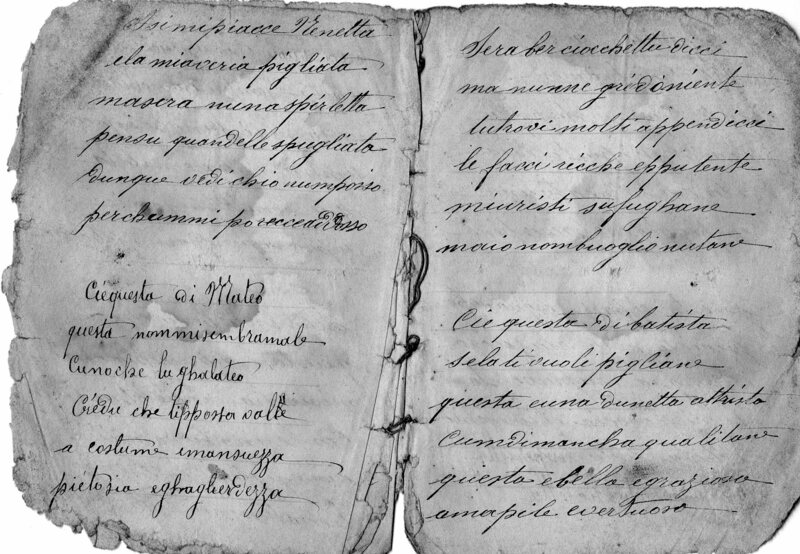 simipiacce Nenetta
elamiaveria pigliata
masera nunaspirletta
pensu quandelle spugliata
dunque vedi chio numposso
perchummi
Ciequesta di Mateo
questa nommisembramale
Cunoche lu ghalateo
Crèdu che tipposta
a costume emansuezza
pietosia eghaglierdezza
Sera ber ciocchettu dicci
ma nunne grèdoniente
tutrovi molti appendicci
le facci ricche epputente
miuristi sufughane
maionombuoglio nutane
Ciequesta di batista
selati vuoli pigliane
questa euna dunetta attrista
cumdimancha qualitane
questa ebella egraziosa
amapile evertuosa